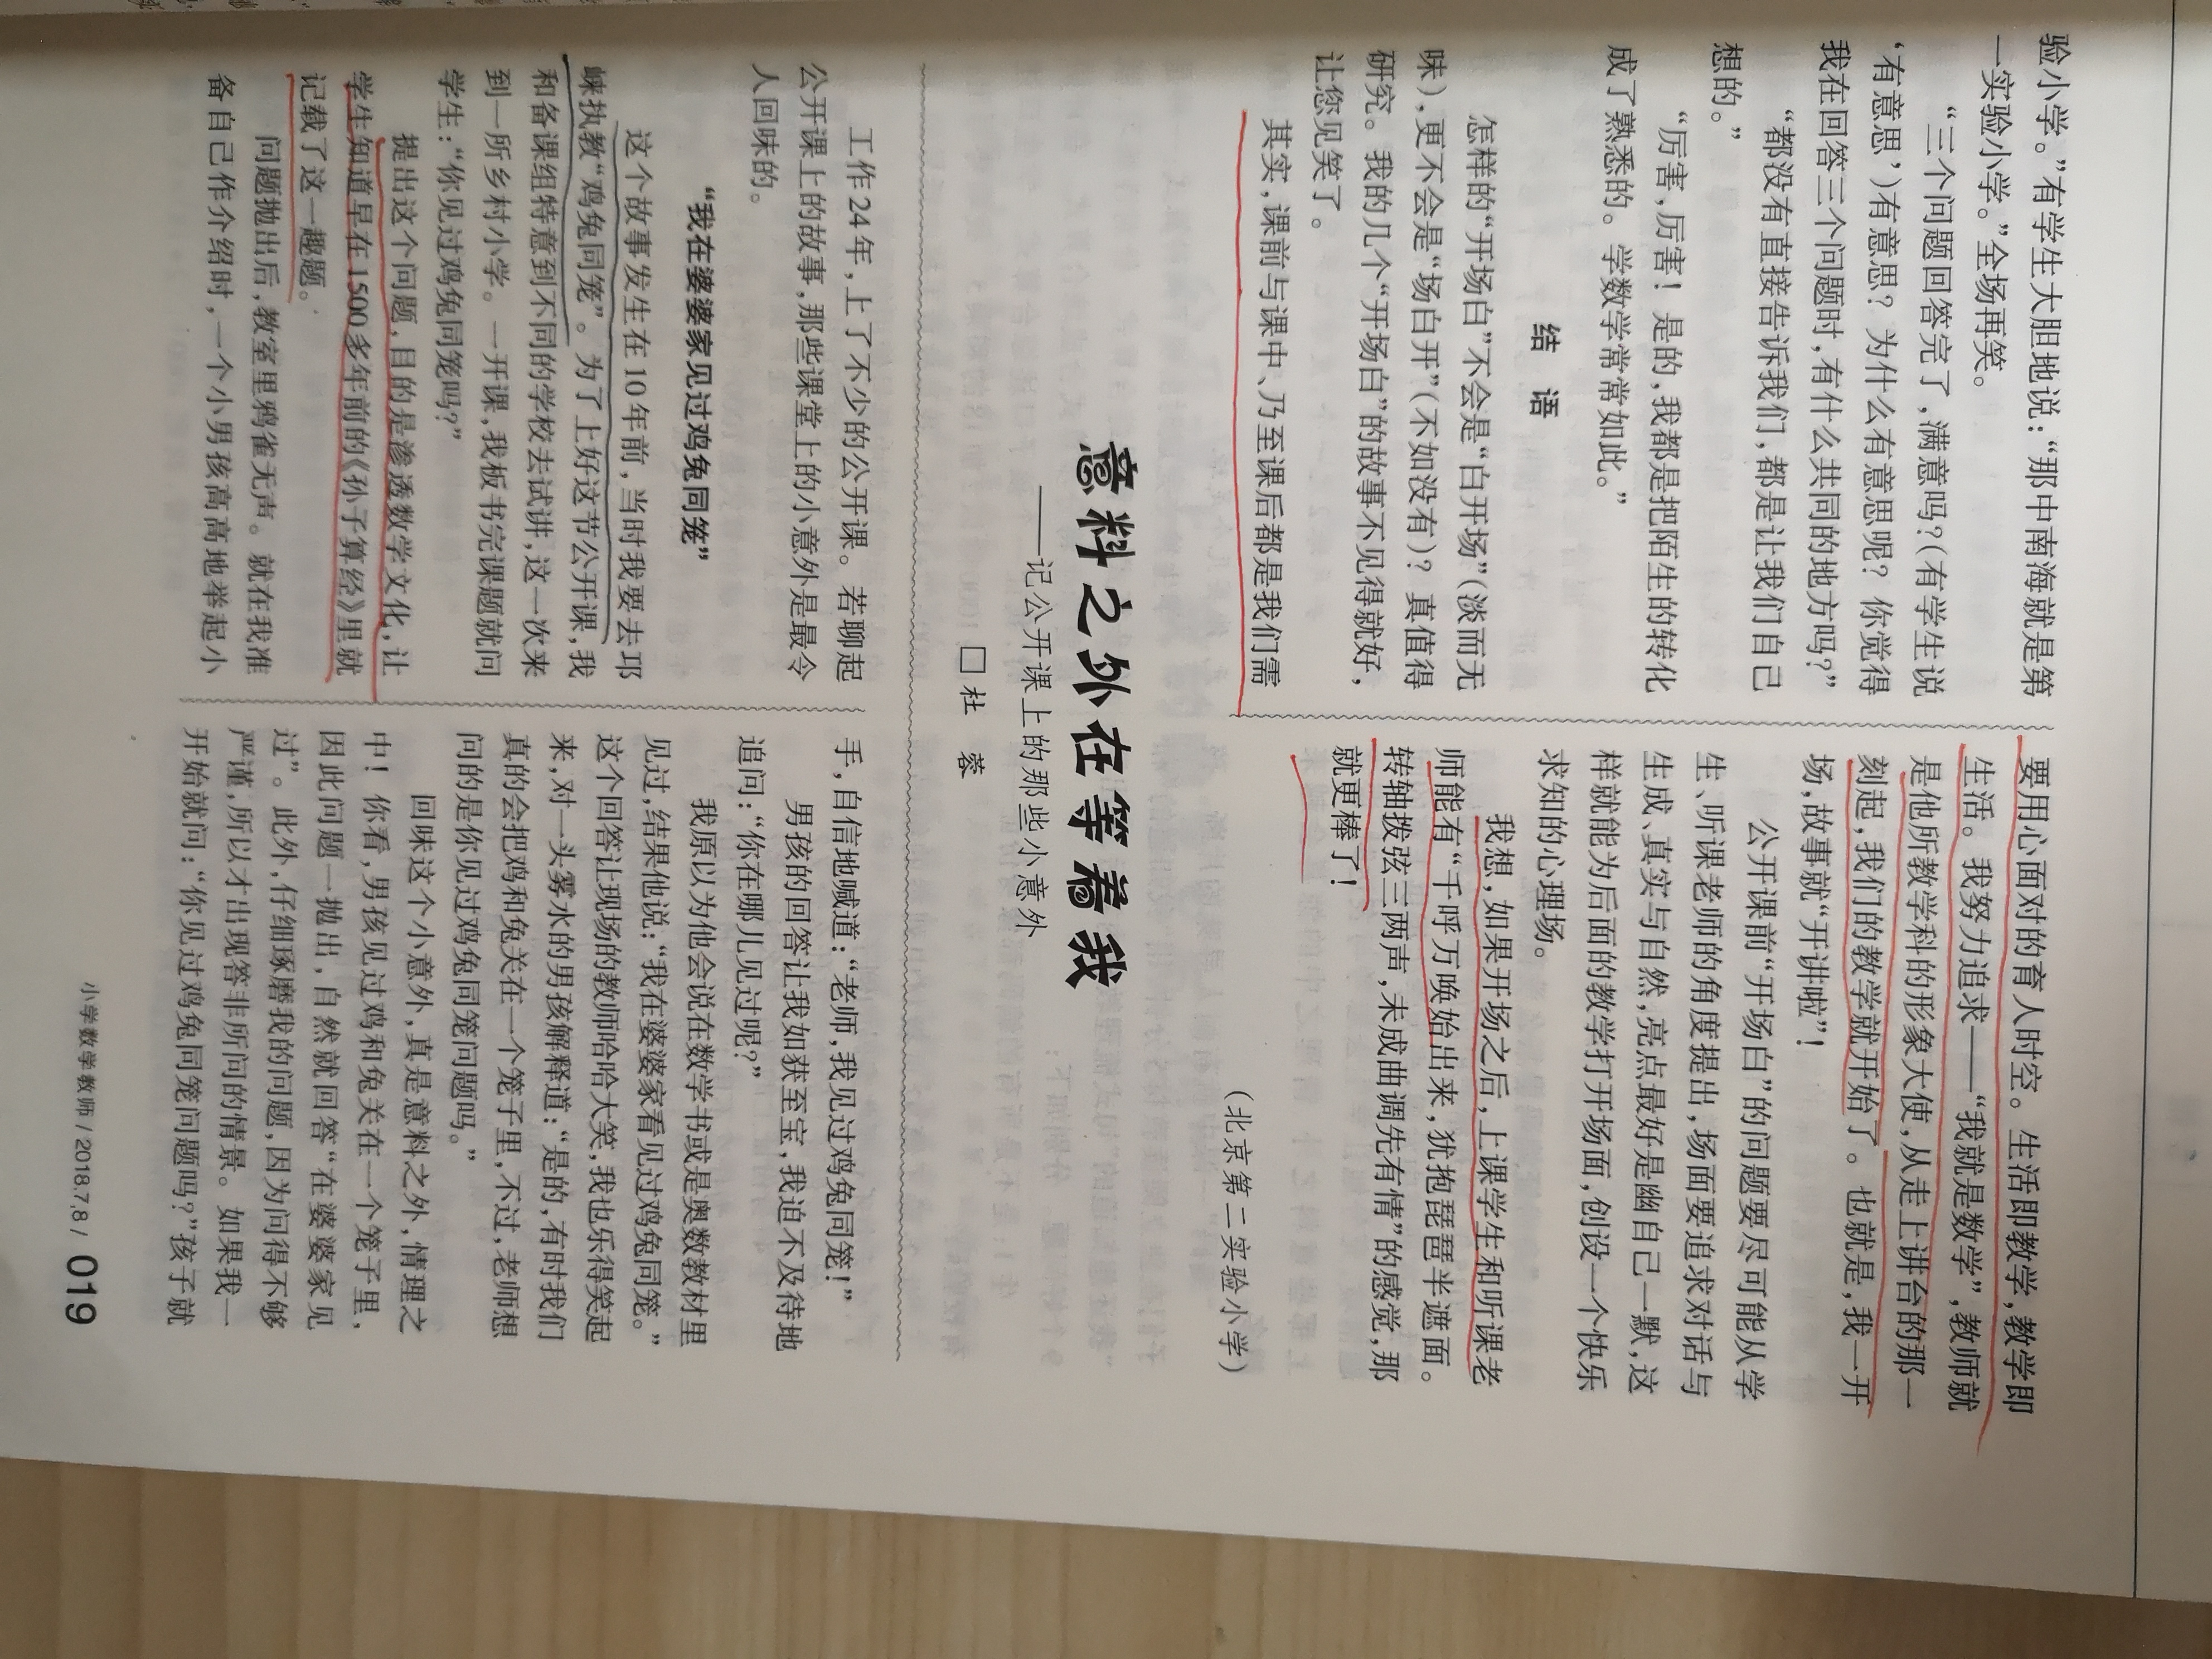 验小学。”有学生大胆地说：“那中南海就是第
一实验小学。”全场再笑。
“三个问题回答完了，满意吗？（有学生说
‘有意思’）有意思？为什么有意思呢？你觉得
我在回答三个问题时，有什么共同的地方吗？”
“都没有直接告诉我们，都是让我们自己
想的。”
“厉害，厉害！是的，我都是把陌生的转化
成了熟悉的。学数学常常如此。”
结 语
怎样的“开场白”不会是“白开场”（淡而无
味），更不会是“场白开”（不如没有）？真值得
研究。我的几个“开场白”的故事不见得就好，
让您见笑了。
其实，课前与课中、乃至课后都是我们需
要用心面对的育人时空。生活即教学，教学即
生活。我努力追求——“我就是数学”，教师就
是他所教学科的形象大使，从走上讲台的那一
刻起，我们的教学就开始了。也就是，我一开
场，故事就“开讲啦”！
公开课前“开场白”的问题要尽可能从学
生、听课老师的角度提出，场面要追求对话与
生成、真实与自然，亮点最好是幽自己一默，这
样就能为后面的教学打开场面，创设一个快乐
求知的心理场。
我想，如果开场之后，上课学生和听课老
师能有“千呼万唤始出来，犹抱琵琶半遮面。
转轴拨弦三两声，未成曲调先有情”的感觉，那
就更棒了！
（北京第二实验小学）
意料之外在等着我
——记公开课上的那些小意外
□ 杜 蓉
工作24年，上了不少的公开课。若聊起
公开课上的故事，那些课堂上的小意外是最令
人回味的。
“我在婆婆家见过鸡兔同笼”
这个故事发生在10年前，当时我要去邛
崃执教“鸡兔同笼”。为了上好这节公开课，我
和备课组特意到不同的学校去试讲，这一次来
到一所乡村小学。一开课，我板书完课题就问
学生：“你见过鸡兔同笼吗？”
提出这个问题，目的是渗透数学文化，让
学生知道早在1500多年前的《孙子算经》里就
记载了这一趣题。
问题抛出后，教室里鸦雀无声。就在我准
备自己作介绍时，一个小男孩高高地举起小
手，自信地喊道：“老师，我见过鸡兔同笼！”
男孩的回答让我如获至宝，我迫不及待地
追问：“你在哪儿见过呢？”
我原以为他会说在数学书或是奥数教材里
见过，结果他说：“我在婆婆家看见过鸡兔同笼。”
这个回答让现场的教师哈哈大笑，我也乐得笑起
来，对一头雾水的男孩解释道：“是的，有时我们
真的会把鸡和兔关在一个笼子里，不过，老师想
问的是你见过鸡兔同笼问题吗。”
回味这个小意外，真是意料之外，情理之
中！你看，男孩见过鸡和兔关在一个笼子里，
因此问题一抛出，自然就回答“在婆婆家见
过”。此外，仔细琢磨我的问题，因为问得不够
严谨，所以才出现答非所问的情景。如果我一
开始就问：“你见过鸡兔同笼问题吗？”孩子就
小学数学教师/2018.7.8/ 019